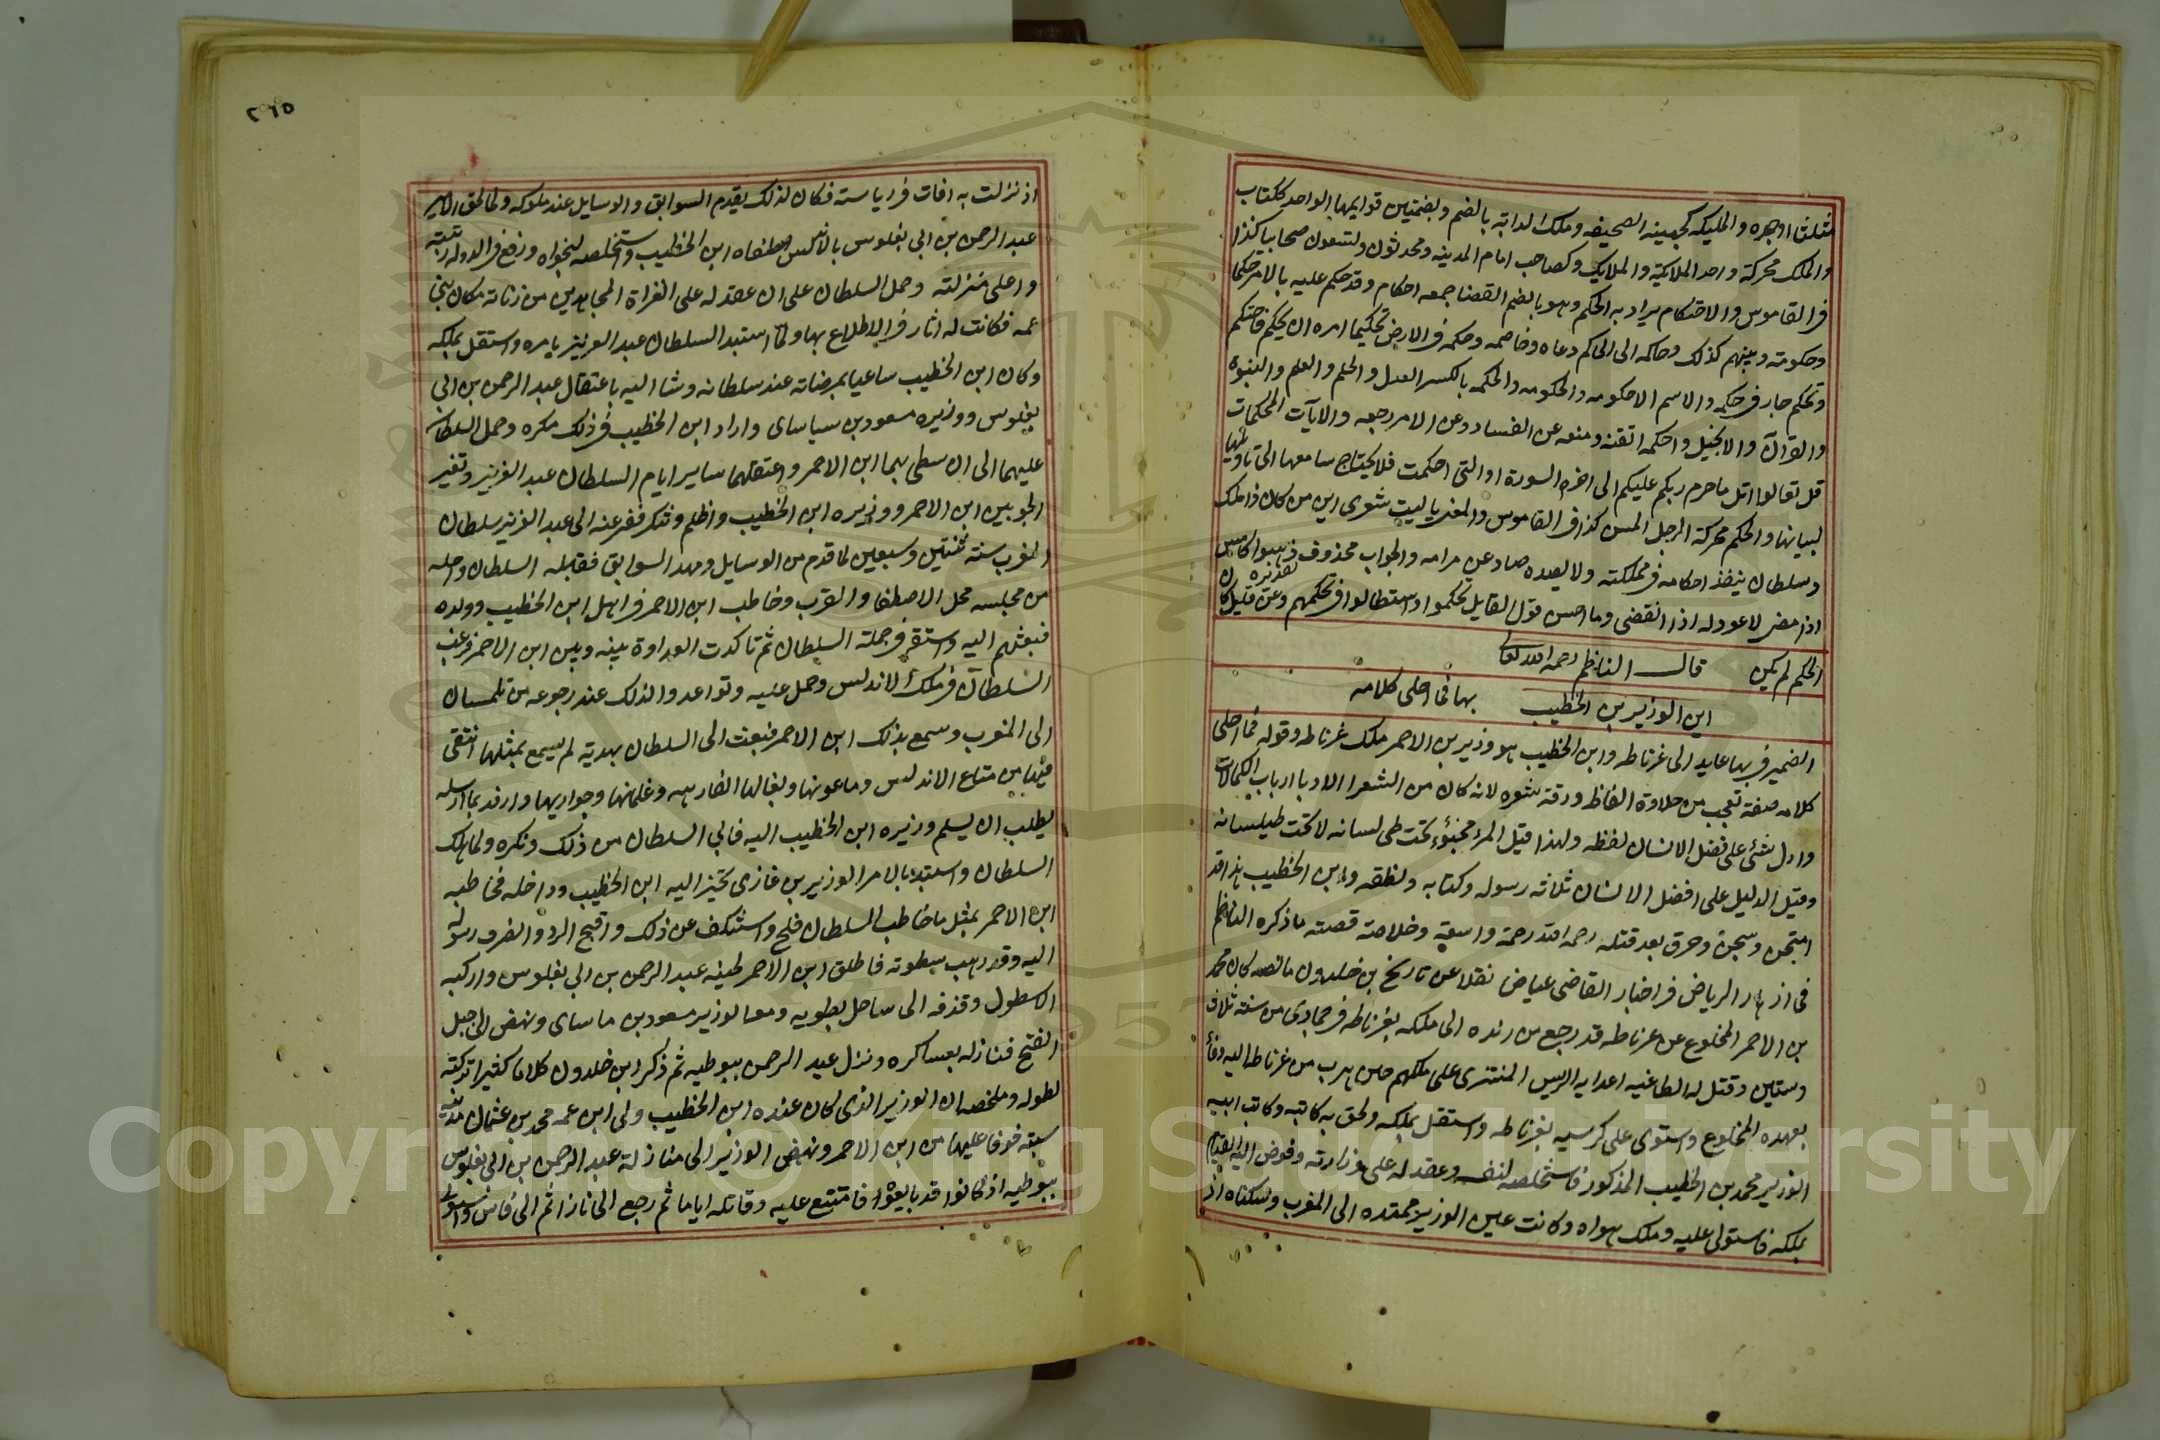 مثلثا اوجهره والمليكة كجهينة الصحيفه وملك الدابة بالضم وبضمتين قوايمها الواحد ككتاب
والملك محركة واحد الملايكة والملايك وكصاحب امام المدينه ومحدثون وتسعون صحابيا كذا
فى القاموس والاحتكام يراد به الحكم وهو بالضم القضا جمعه احكام وقد حكم عليه بالامر حكما
وحكومته وبينهم كذلك وحاكمه الى الحاكم دعاه وخاصمه وحكمه فى الارض تحكيما امره ان يحكم فاحتكم
وتحكم جار فى حكمه والاسم الاحكومه والحكومه والحكمه بالكسر العدل والحلم والعلم والنبوة
والقرآن والانجيل واحكمه اتقنه ومنعه عن الفساد وعن الامر رجعه والايات المحكمات
قل تعالوا اتل ما حرم ربكم عليكم الى اخر السورة او التى احكمت فلا يحتاج سامعها الى تاويلها
لبيانها والحكم محركة الرجل المسن كذا فى القاموس والمعنى ياليت شعرى اين من كان ذا ملك
وسلطان ينفذ احكامه فى مملكته ولا يصده صاد عن مرامه والجواب محذوف تقديره ذهبوا كامس
اذا مضى لا عود له اذا انقضى وما احسن قول القايل تحكموا واستطالوا فى تحكمهم وعن قليل كان
الحكم لم يكن قال الناظم رحمه الله تعالى
اين الوزير بن الخطيب بها فما احلى كلامه
الضمير فى بها عايد الى غرناطه وابن الخطيب هو وزير بن الاحمر ملك غرناطه وقوله فما احلى
كلامه صفة تعجب من حلاوة الفاظه ورقة شعره لانه كان من الشعرا الادبا ارباب الكمالات
وادل شئ على فضل الانسان لفظه ولهذا قيل المرء مخبوء تحت طى لسانه لا تحت طيلسانه
وقيل الدليل على افضل الانسان ثلاثة رسوله وكتابه ونطقه وابن الخطيب هذا قد
امتحن وسجن وحرق بعد قتله رحمه الله رحمة واسعة وخلاصة قصته ما ذكره الناظم
فى ازهار الرياض فى اخبار القاضى عياض نقلا عن تاريخ بن خلدون ما نصه كان محمد
بن الاحمر المخلوع عن غرناطه قد رجع من رنده الى ملكه بغرناطه فى جمادى من سنة ثلاث
وستين وقتل له الطاغيه اعدايه الريس المنتزى على ملكهم حين هرب من غرناطه اليه وفآء
بعهده المخلوع واستوى على كرسيه بغرناطه واستقل بملكه ولحق به كاتبه وكاتب ابيه
الوزير محمد بن الخطيب المذكور فاستخلصه لنفسه وعقد له على وزارته وفوض اليه القيام
بملكه فاستولى عليه وملك هواه وكانت عين الوزير ممتده الى المغرب وسكناه اذ
٢٦٥
اذ نزلت به افات فى رياسته فكان لذلك يقدم السوابق والوسايل عند ملوكه ولما لحق الامير
عبد الرحمن بن ابى يغلوس بالاندلس اصطفاه ابن الخطيب واستخلصه لنجواه ورفع فى الدوله رتبته
واعلى منزلته وحمل السلطان على ان عقد له على الغزاة المجاهدين من زناتة مكان بنى
عمه فكانت له اثار فى الاطلاع بها ولما استبد السلطان عبد العزيز بامره واستقل بملكه
وكان ابن الخطيب ساعيا بمرضاته عند سلطانه وشا اليه باعتقال عبد الرحمن بن ابى
يغلوس ووزيره مسعود بن سياساى واراد ابن الخطيب فى ذلك مكره وحمل السلطان
عليهما الى ان سطى بهما ابن الاحمر واعتقلهما ساير ايام السلطان عبد العزيز وتغير
الجو بين ابن الاحمر ووزيره ابن الخطيب واظلم وتنكر ففر عنه الى عبد العزيز سلطان
المغرب سنة ثنتين وسبعين لما قدم من الوسايل ومهد السوابق فقبله السلطان واحله
من مجلسه محل الاصطفا والقرب وخاطب ابن الاحمر فى اهل ابن الخطيب وولده
فبعثهم اليه واستقر فى جملة السلطان ثم تاكدت العداوة بينه وبين ابن الاحمر فرغب
السلطان فى ملك الاندلس وحمل عليه وتواعدوا لذلك عند رجوعه من تلمسان
الى المغرب وسمع بذلك ابن الاحمر فبعث الى السلطان بهدية لم يسمع بمثلها انتقى
فيها من متاع الاندلس وماعونها وبغالها الفارهه وغلمانها وجواريها واوفد بها رسله
يطلب ان يسلم وزيره ابن الخطيب اليه فابى السلطان من ذلك ونكره ولما هلك
السلطان واستبد بالامر الوزير بن غازى تحيز اليه ابن الخطيب وداخله فخاطبه
ابن الاحمر بمثل ما خاطب السلطان فلج واستنكف عن ذلك واقبح الرد وانصرف رسوله
اليه وقد رهب سطوته فاطلق ابن الاحمر لحينه عبد الرحمن بن ابى يغلوس واركبه
الاسطول وقذفه الى ساحل بطويه ومعه الوزير مسعود بن ماساى ونهض الى جبل
الفتح فنازله بعساكره ونزل عبد الرحمن ببوطيه ثم ذكر ابن خلدون كلاما كثيرا تركته
لطوله وملخصه ان الوزير الذى كان عنده ابن الخطيب ولى ابن عمه محمد بن عثمان مدينة
سبته خوفا عليها من ابن الاحمر ونهض الوزير الى منازلة عبد الرحمن بن ابى يغلوس
ببوطيه اذ كانوا قد بايعوا فامتنع عليه وقاتله اياما ثم رجع الى تازا ثم الى فاس واستولى